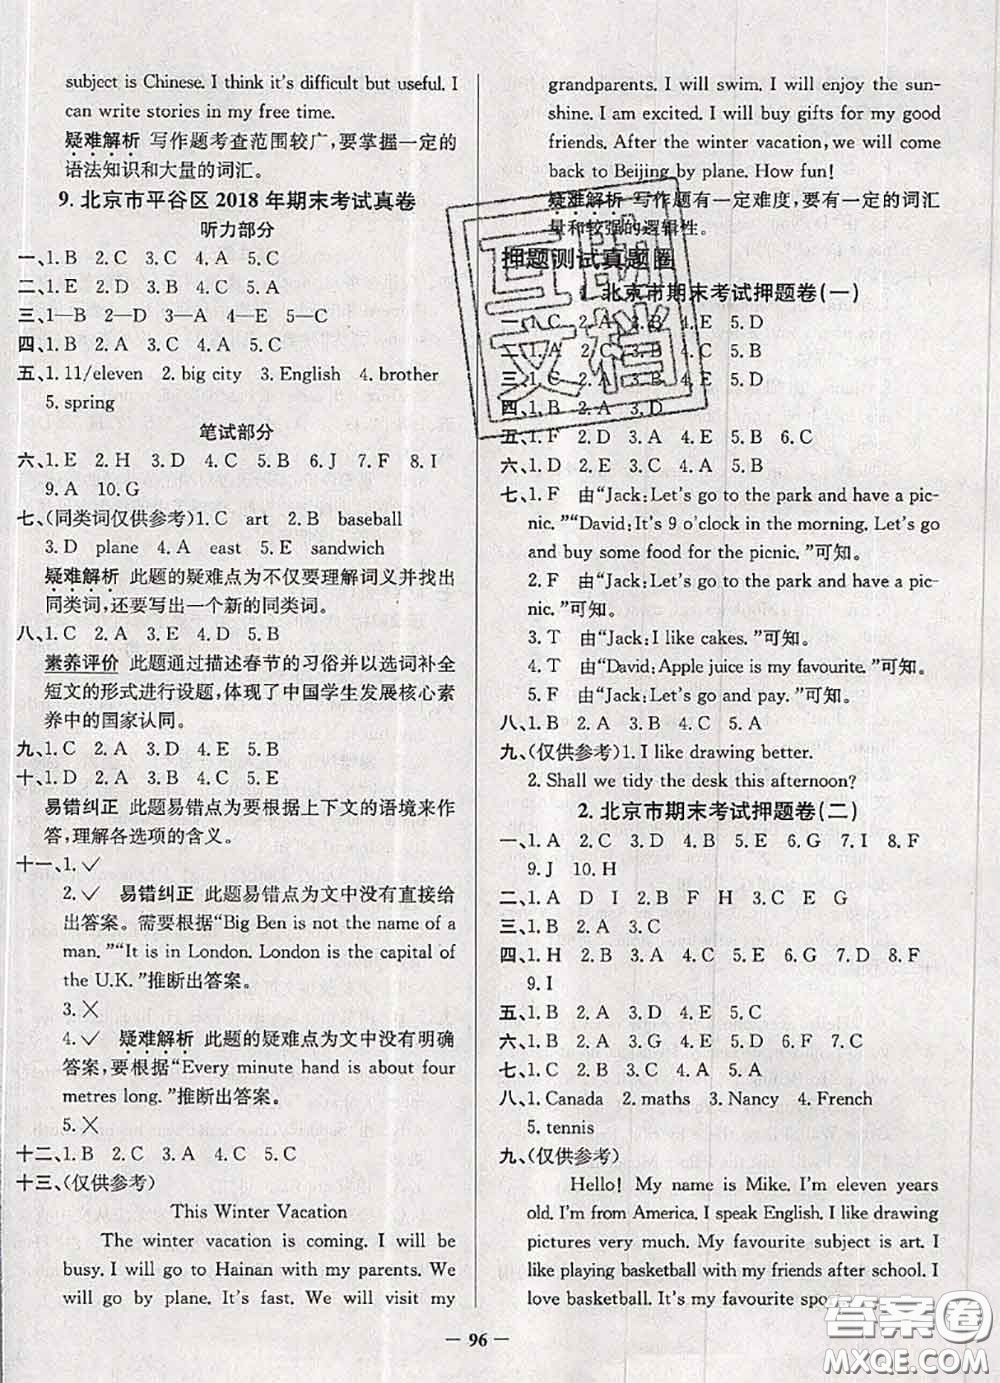 subject is Chinese. I think it's difficult but useful. I
can write stories in my free time.
疑难解析 写作题考查范围较广,要掌握一定的
语法知识和大量的词汇。
9. 北京市平谷区 2018 年期末考试真卷
听力部分
一、1. B 2. C 3. C 4. A 5. C
二、1. E 2. D 3. B 4. C 5. A
三、1—B 2—D 3—A 4—C
四、1. B 2. A 3. A 4. A 5. C
五、1. 11/eleven 2. big city 3. English 4. brother
5. spring
笔试部分
六、1. E 2. H 3. D 4. C 5. B 6. J 7. F 8. I
9. A 10. G
七、(同类词仅供参考)1. C art 2. B baseball
3. D plane 4. A east 5. E sandwich
疑难解析 此题的疑难点为不仅要理解词义并找出
同类词,还要写出一个新的同类词。
八、1. C 2. A 3. E 4. D 5. B
素养评价 此题通过描述春节的习俗并以选词补全
短文的形式进行设题,体现了中国学生发展核心素
养中的国家认同。
九、1. C 2. A 3. D 4. E 5. B
十、1. D 2. A 3. B 4. C 5. E
易错纠正 此题易错点为要根据上下文的语境来作
答,理解各选项的含义。
十一、1. ✓
2. ✓ 易错纠正 此题易错点为文中没有直接给
出答案。需要根据“Big Ben is not the name of a
man.”“It is in London. London is the capital of
the U.K.”推断出答案。
3. ✕
4. ✓ 疑难解析 此题的疑难点为文中没有明确
答案,要根据“Every minute hand is about four
metres long.”推断出答案。
5. ✕
十二、1. B 2. B 3. C 4. A 5. C
十三、(仅供参考)
This Winter Vacation
The winter vacation is coming. I will be
busy. I will go to Hainan with my parents. We
will go by plane. It's fast. We will visit my
grandparents. I will swim. I will enjoy the sun-
shine. I am excited. I will buy gifts for my good
friends. After the winter vacation, we will come
back to Beijing by plane. How fun!
疑难解析 写作题有一定难度,要有一定的词汇
量和较强的逻辑性。
押题测试真题圈
1. 北京市期末考试押题卷(一)
一、1. C 2. A 3. B 4. E 5. D
二、1. A 2. C 3. B 4. C
三、1. C 2. A 3. B 4. E 5. D
四、1. B 2. A 3. D
五、1. F 2. D 3. A 4. E 5. B 6. C
六、1. D 2. E 3. B 4. C 5. A
七、1. F 由“Jack: Let's go to the park and have a pic-
nic.”“David: It's 9 o'clock in the morning. Let's go
and buy some food for the picnic.”可知。
2. F 由“Jack: Let's go to the park and have a pic-
nic.”可知。
3. T 由“Jack: I like cakes.”可知。
4. T 由“David: Apple juice is my favourite.”可知。
5. F 由“Jack: Let's go and pay.”可知。
八、1. B 2. A 3. B 4. C 5. A
九、(仅供参考)1. I like drawing better.
2. Shall we tidy the desk this afternoon?
2. 北京市期末考试押题卷(二)
一、1. A 2. C 3. D 4. B 5. E 6. G 7. I 8. F
9. J 10. H
二、1. A D I 2. B F H 3. C E G
三、1. B 2. A 3. C
四、1. H 2. B 3. C 4. A 5. G 6. E 7. D 8. F
9. I
五、1. B 2. A 3. D 4. E 5. C
六、1. B 2. A 3. G 4. E 5. D 6. F 7. C
七、1. C 2. B 3. D 4. E 5. A
八、1. Canada 2. maths 3. Nancy 4. French
5. tennis
九、(仅供参考)
Hello! My name is Mike. I'm eleven years
old. I'm from America. I speak English. I like drawing
pictures very much. My favourite subject is art. I
like playing basketball with my friends after school. I
love basketball. It's my favourite
— 96 —
答案圈
MXQE.COM